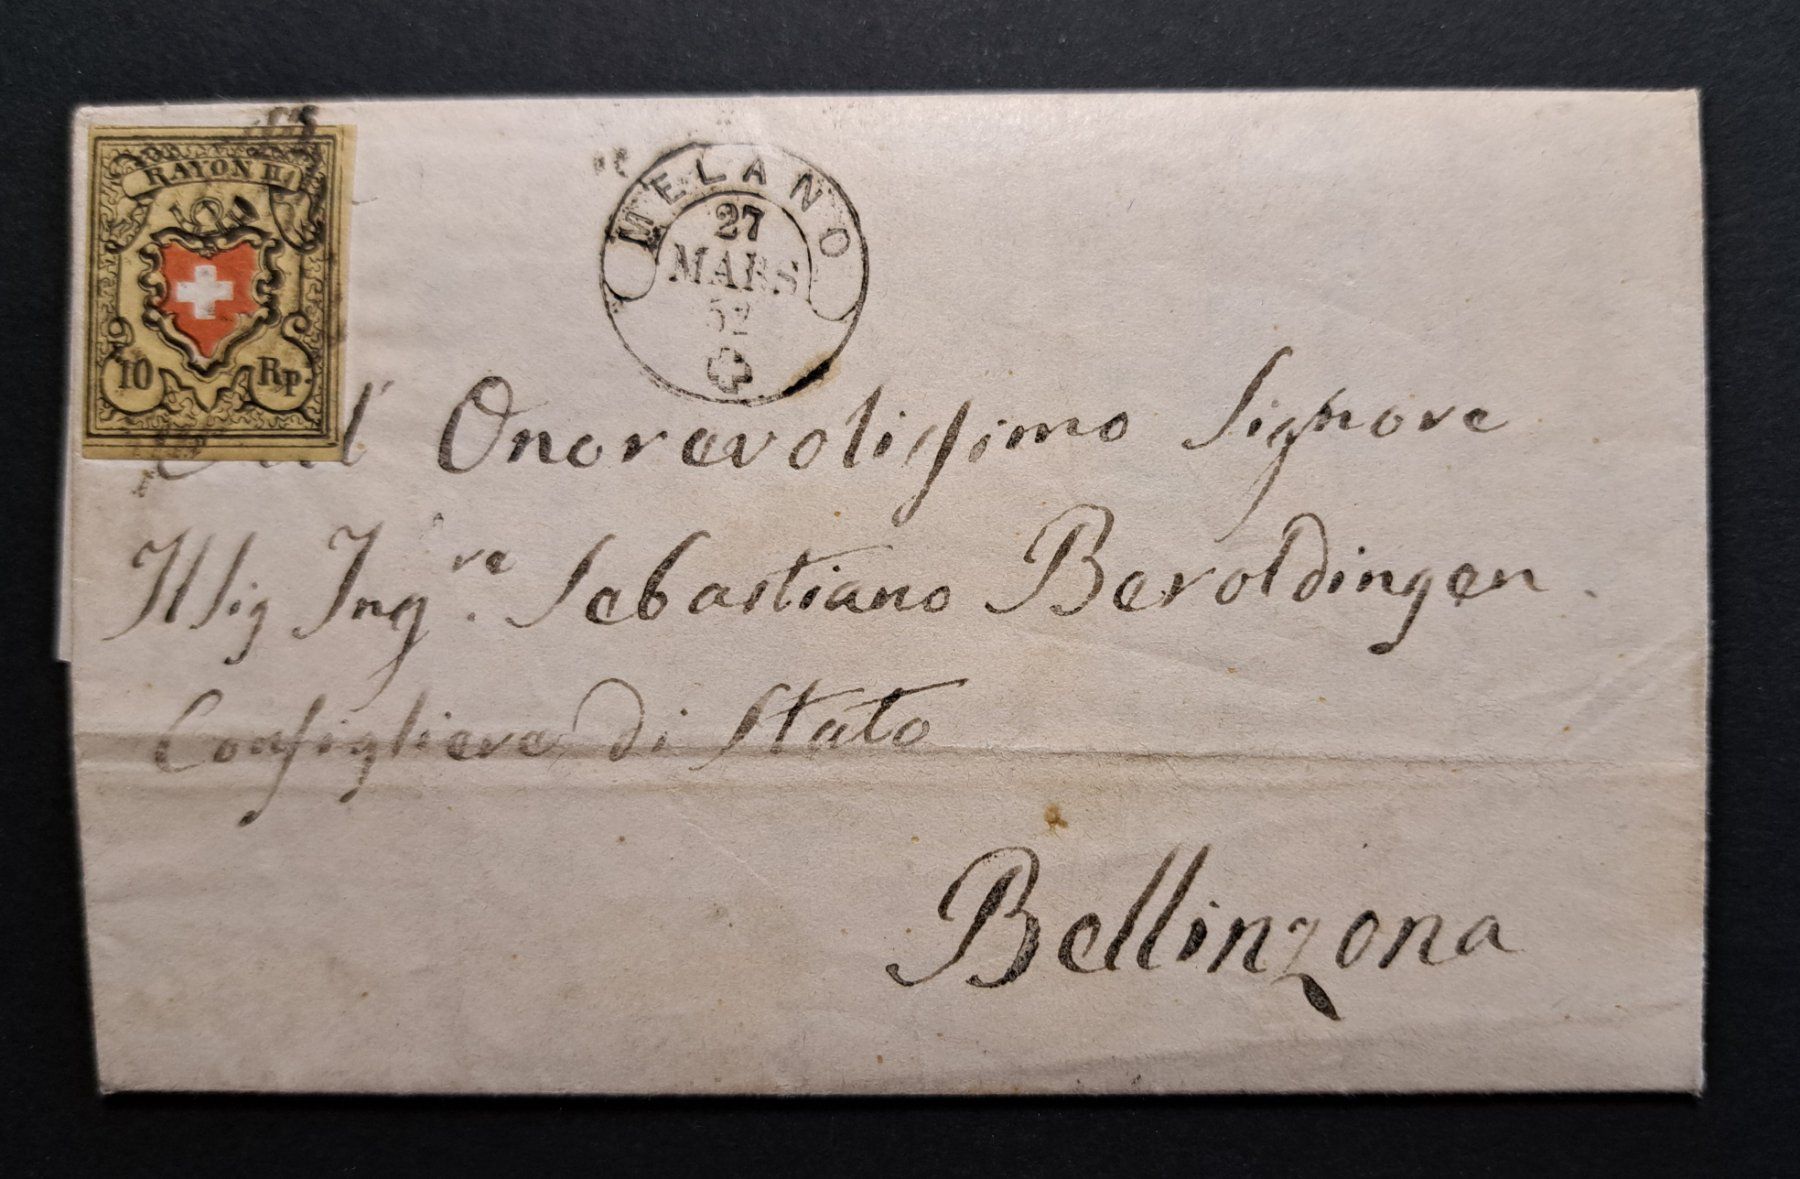 RAYON II
10 Rp.
MELANO
27
MARS
52
All' Onorevolissimo Signore
Il Sig Ing.re Sebastiano Beroldingen.
Consigliere di Stato
Bellinzona